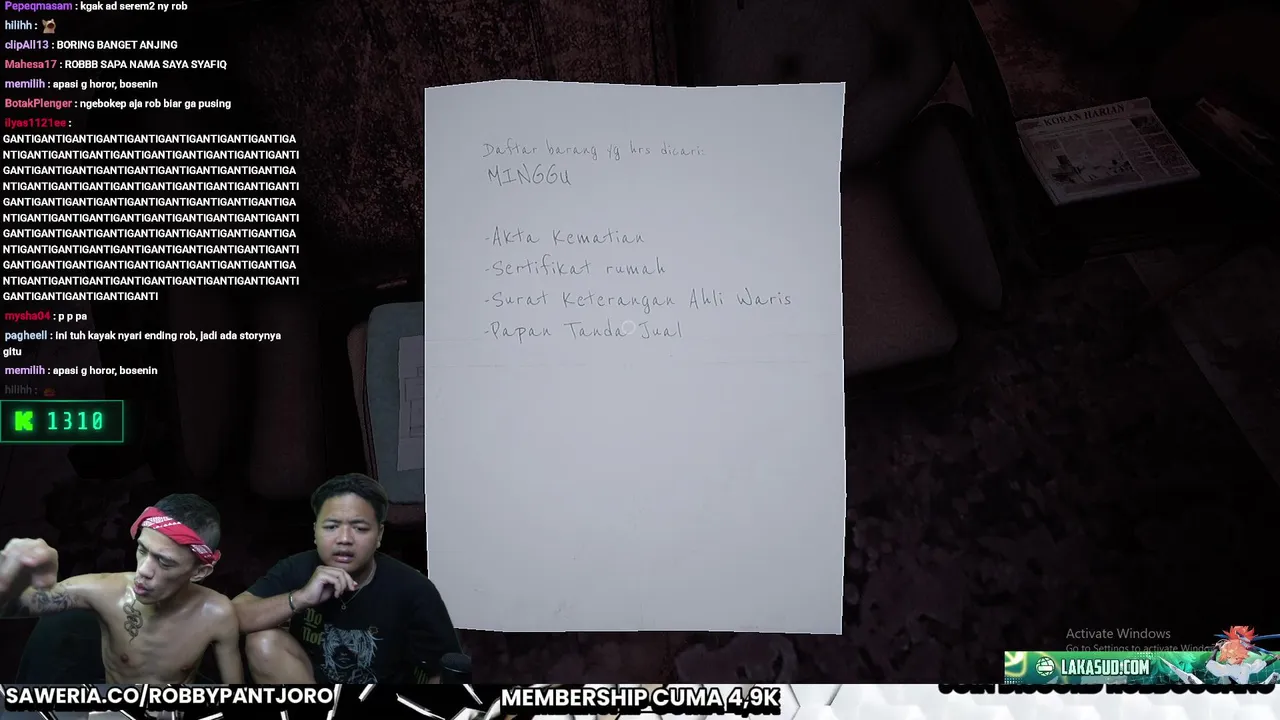 Pepeqmasam : kgak ad serem2 ny rob
hilihh :
clipAll13 : BORING BANGET ANJING
Mahesa17 : ROBBB SAPA NAMA SAYA SYAFIQ
memilih : apasi g horor, bosenin
BotakPlenger : ngebokep aja rob biar ga pusing
ilyas1121ee :
GANTIGANTIGANTIGANTIGANTIGANTIGANTIGANTIGANTIGA
NTIGANTIGANTIGANTIGANTIGANTIGANTIGANTIGANTIGANTI
GANTIGANTIGANTIGANTIGANTIGANTIGANTIGANTIGANTIGA
NTIGANTIGANTIGANTIGANTIGANTIGANTIGANTIGANTIGANTI
GANTIGANTIGANTIGANTIGANTIGANTIGANTIGANTIGANTIGA
NTIGANTIGANTIGANTIGANTIGANTIGANTIGANTIGANTIGANTI
GANTIGANTIGANTIGANTIGANTIGANTIGANTIGANTIGANTIGA
NTIGANTIGANTIGANTIGANTIGANTIGANTIGANTIGANTIGANTI
GANTIGANTIGANTIGANTIGANTIGANTIGANTIGANTIGANTIGA
NTIGANTIGANTIGANTIGANTIGANTIGANTIGANTIGANTIGANTI
GANTIGANTIGANTIGANTIGANTI
mysha04 : p p pa
pagheell : ini tuh kayak nyari ending rob, jadi ada storynya
gitu
memilih : apasi g horor, bosenin
hilihh :
K 1310
Daftar barang yg hrs dicari:
MINGGU
-Akta Kematian
-Sertifikat rumah
-Surat Keterangan Ahli Waris
-Papan Tanda Jual
KORAN HARIAN
Do
Not
Activate Windows
Go to Settings to activate Windo
LAKASUD.COM
SAWERIA.CO/ROBBYPANTJORO
MEMBERSHIP CUMA 4,9K